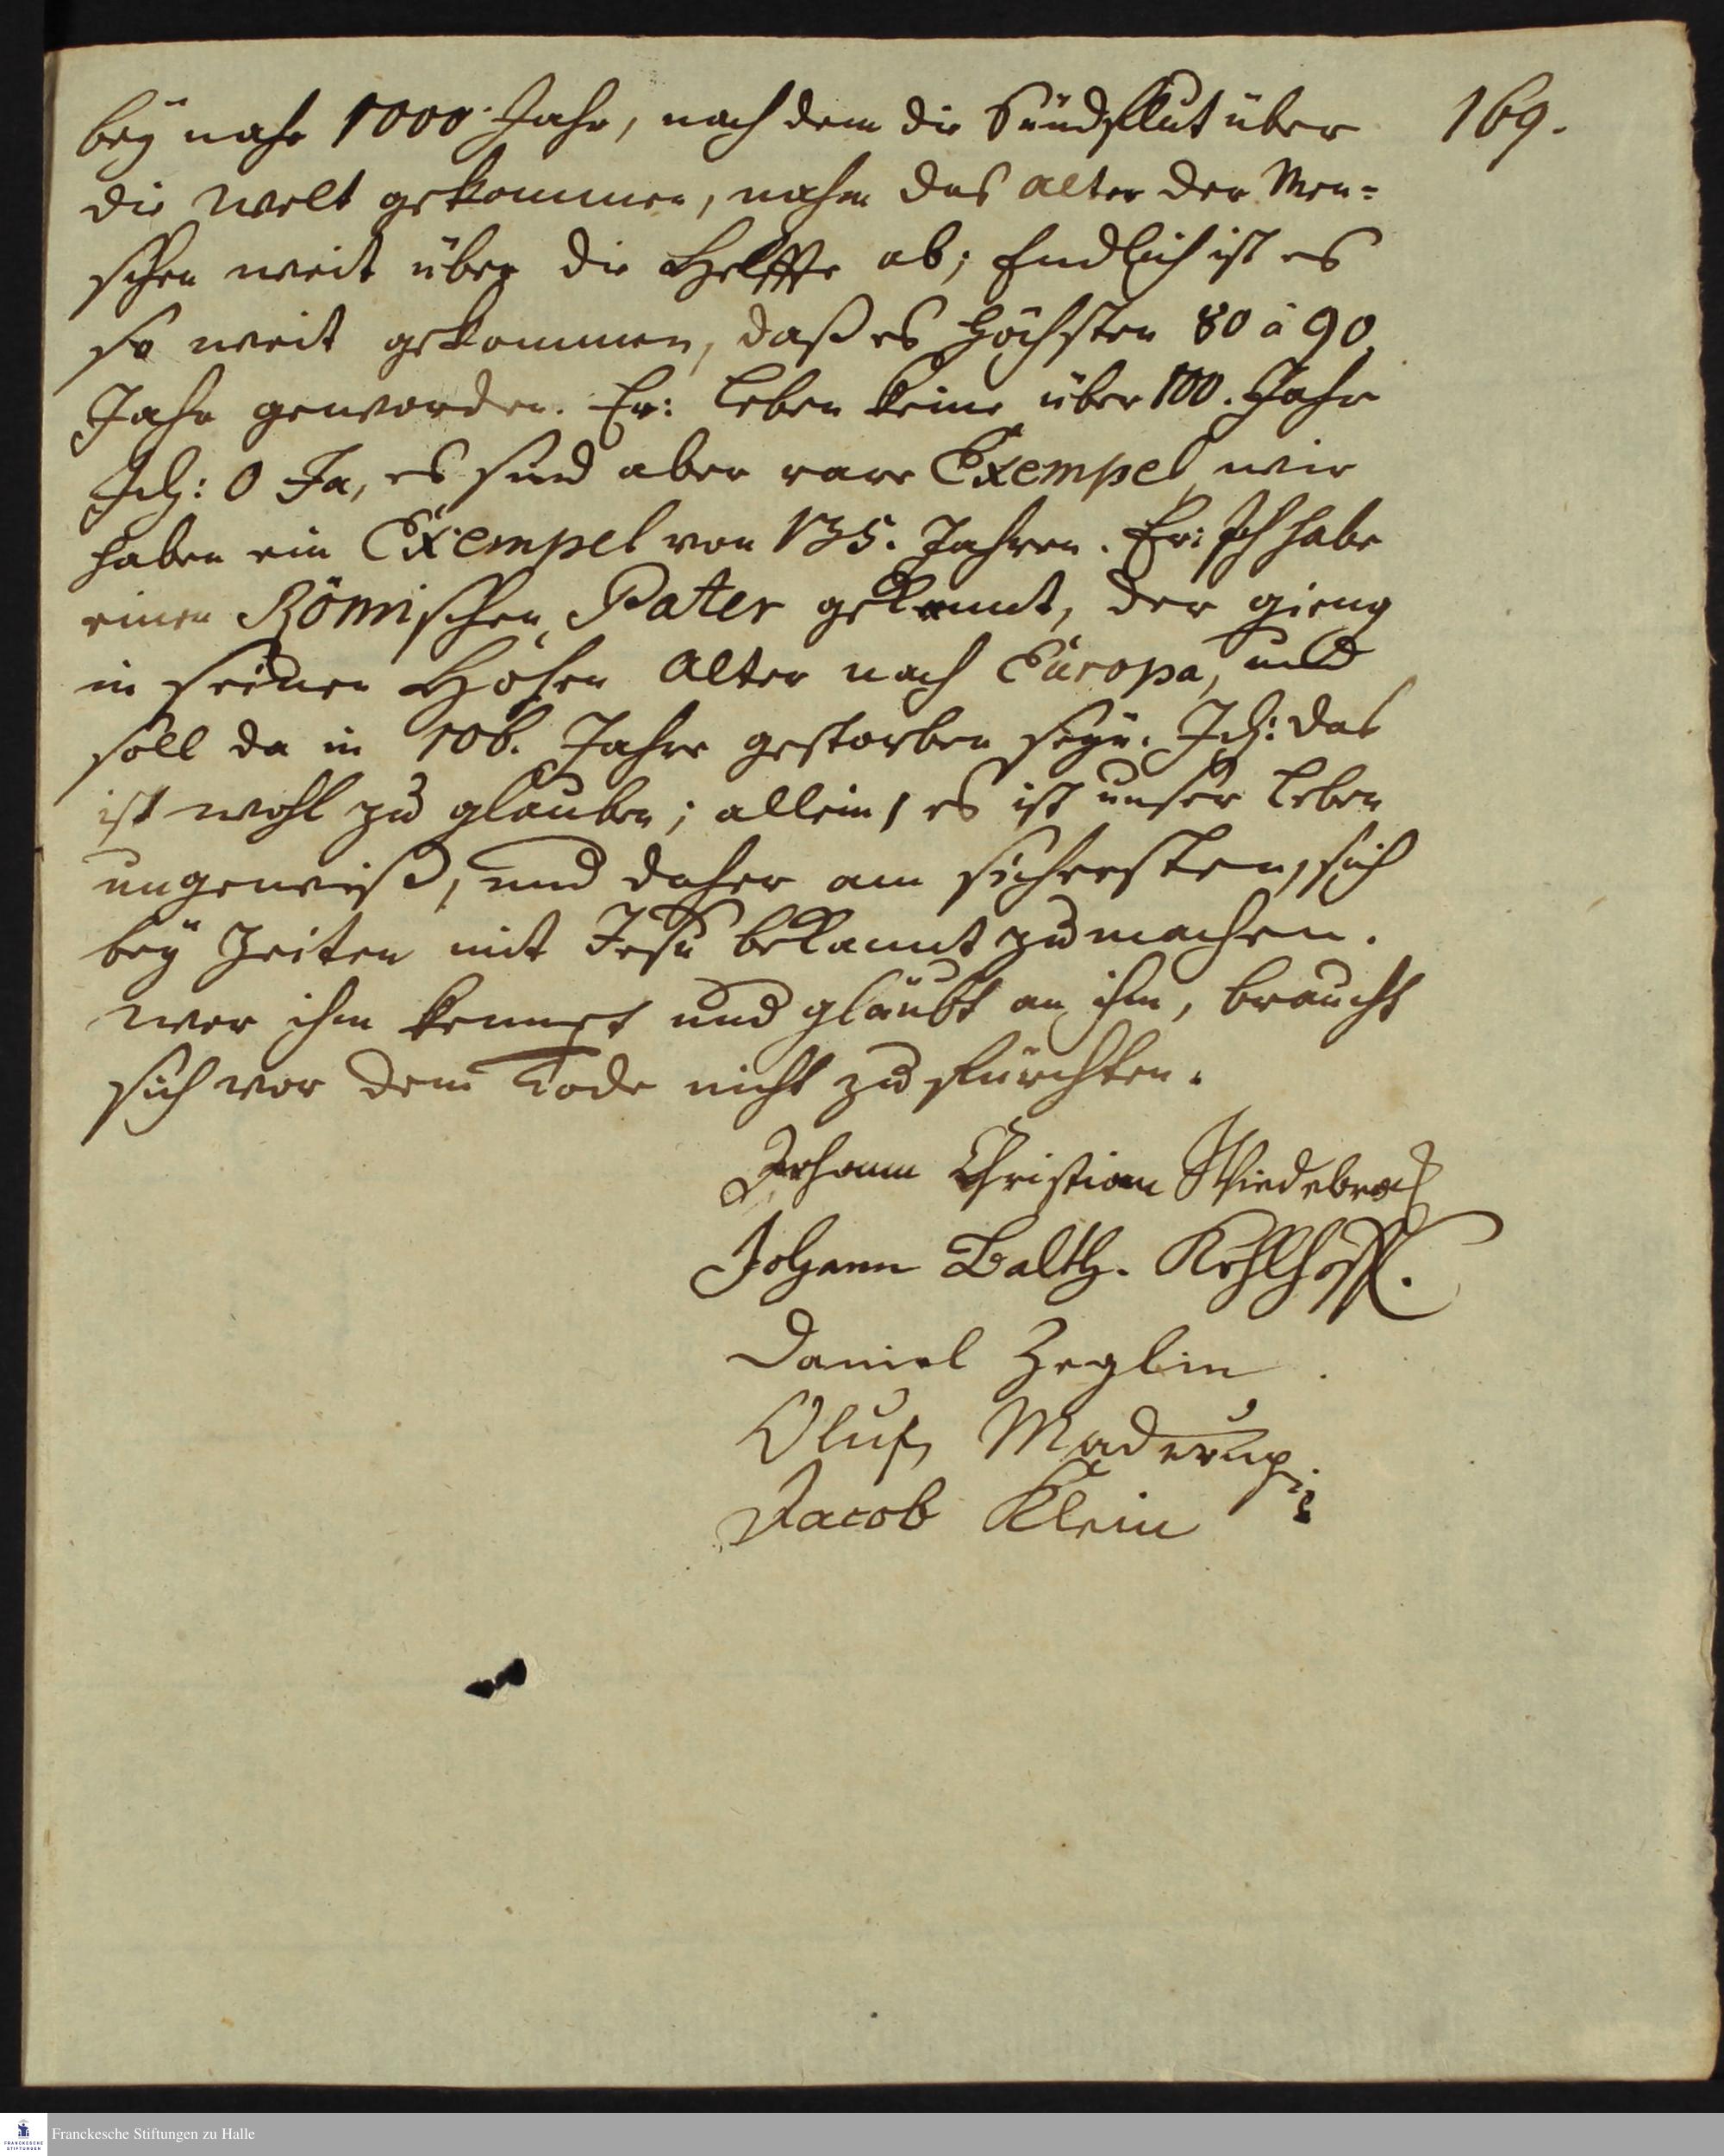 169.
beÿ nahe 1000. Jahr, nach dem die Sündflut über
die Welt gekommen, nahm das Alter der Men=
schen weit über die Helffte ab; Endlich ist es
so weit gekommen, daß es höchsten 80 à 90
Jahr geworden. Er: leben keine über 100. Jahr
Ich: O Ja, es sind aber rare Exempel, wir
haben ein Exempel von 135. Jahren. Er: Ich habe
einen Römischen Pater gekannt, der gieng
in seinen Hohen Alter nach Europa, und
soll da in 106. Jahre gestorben seyn. Ich: das
ist wohl zu glauben; allein, es ist unser Leben
ungewiß, und daher am sichersten, sich
beÿ Zeiten mit Jesu bekannt zu machen.
Wer ihm kennet und gläubt an ihm, braucht
sich vor dem Tode nicht zu fürchten.
Johann Christian Wiedebrock
Johann Balth. Kohlhoff.
Daniel Zeglin.
Oluf Maderup
Jacob Klein
Franckesche Stiftungen zu Halle
FRANCKESCHE
STIFTUNGEN